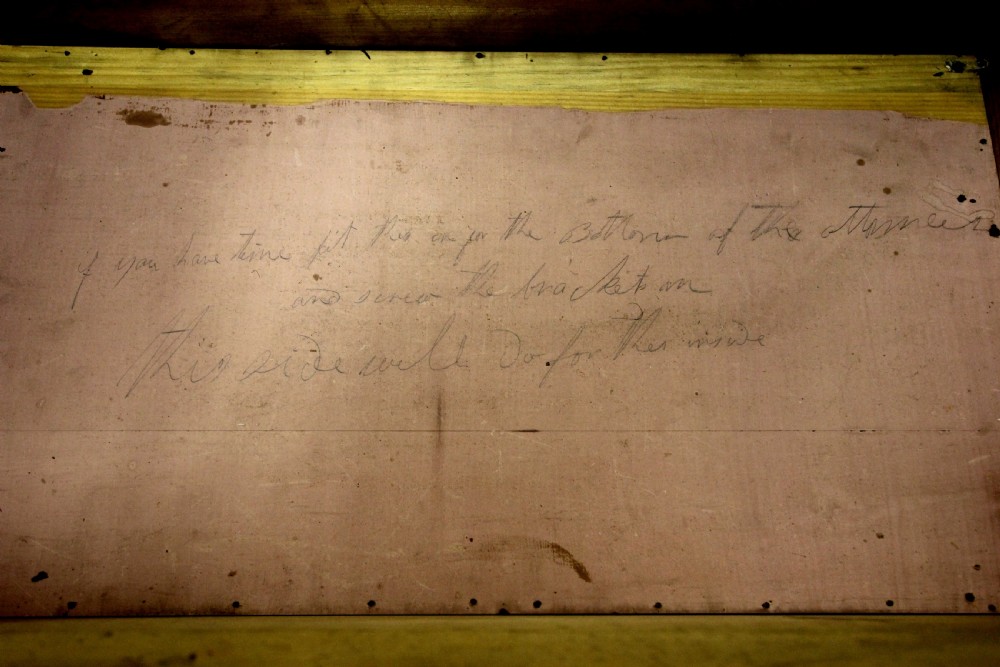 if you have time fit this on for the Bottom of the ottoman
and screw the brackets on
This side will do for the inside